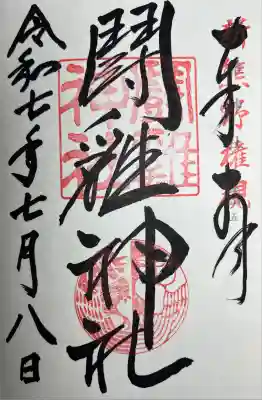 奉拝
新熊野権現
鬪雞神社
鬪雞神社
令和七年七月八日